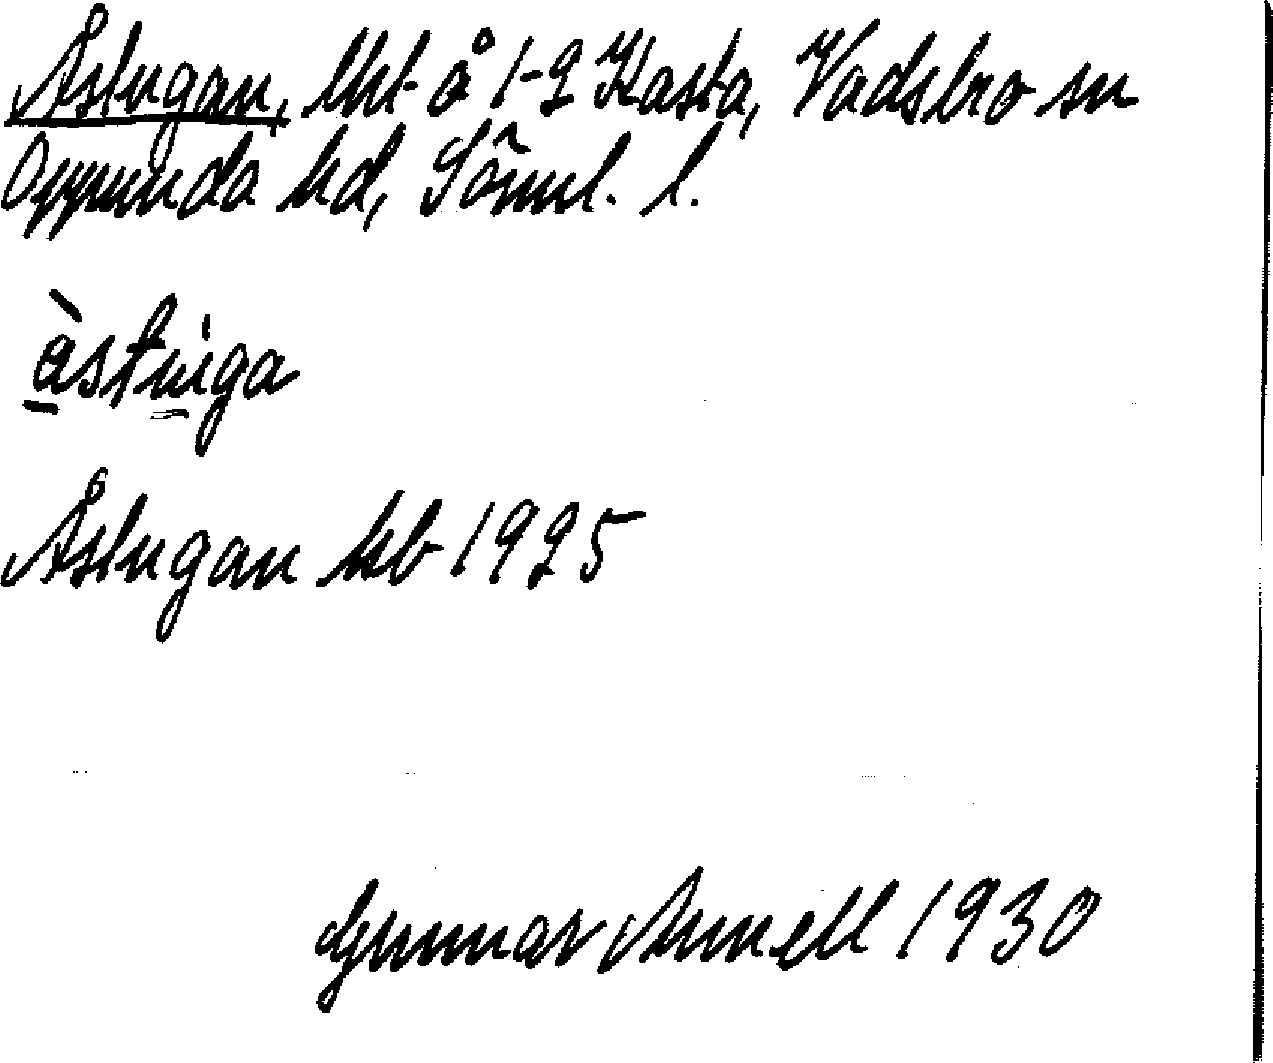 Åstugan, lht å 1-2 Kasta, Vadsbro sn
Oppunda hd, Sörml. l.
àstuga
Åstugan kb 1925
Gunnar Arnell 1930